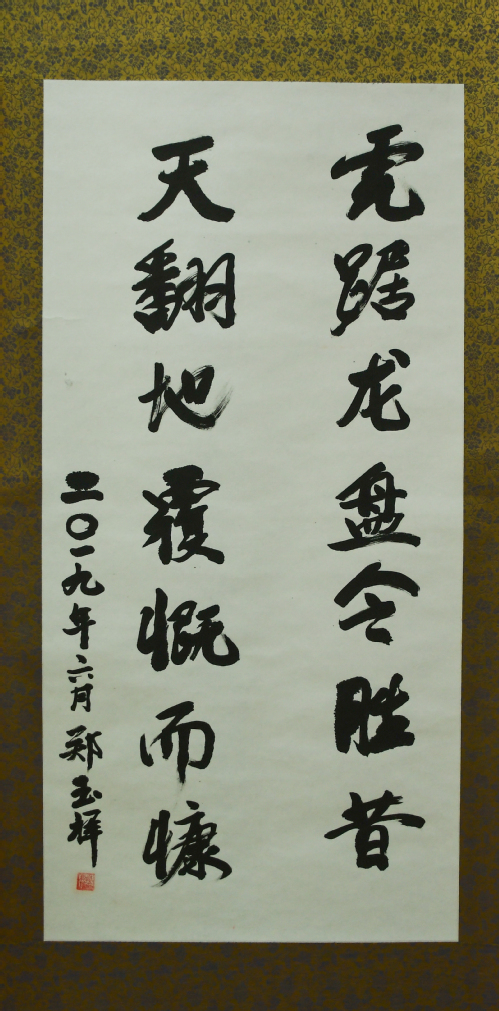 虎踞龙盘今胜昔
天翻地覆慨而慷
二〇一九年六月 郑玉辉